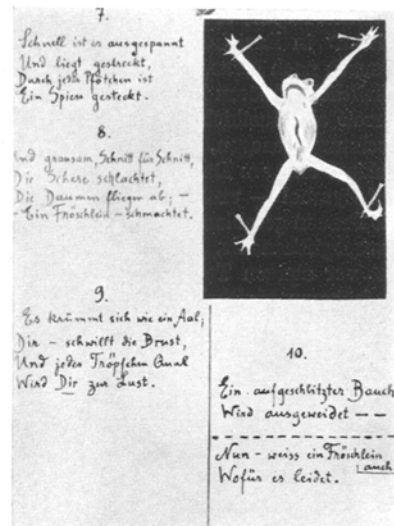 7.
Schnell ist es ausgespannt
Und liegt gestreckt,
Durch jedes Pfötchen ist
Ein Spiess gesteckt.
8.
Und grausam, Schnitt für Schnitt,
Die Schere schlachtet,
Die Daumen fliegen ab; –
– Ein Fröschlein – schmachtet.
9.
Es krümmt sich wie ein Aal;
Dir – schwillt die Brust,
Und jedes Tröpfchen Qual
Wird Dir zur Lust.
10.
Ein aufgeschlitzter Bauch
Wird ausgeweidet – –
Nun – weiss ein Fröschlein
auch
Wofür es leidet.